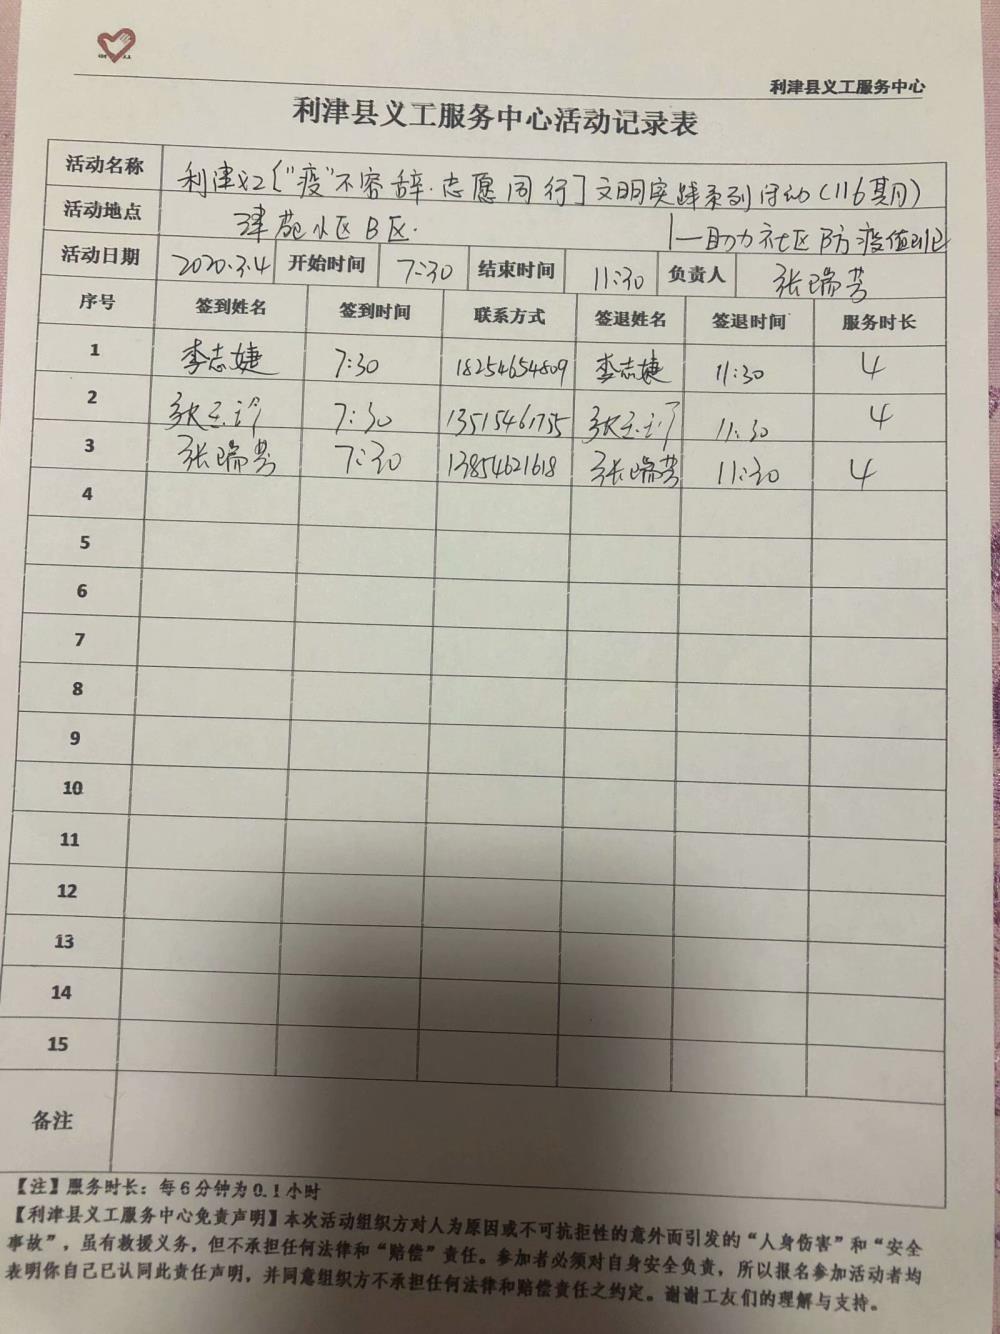 利津县义工服务中心
利津县义工服务中心活动记录表
活动名称 利津义工{"疫"不容辞·志愿同行}文明实践系列活动(116期)
活动地点 津苑小区B区. 助力社区防疫值班
活动日期 2020.3.4 开始时间 7:30 结束时间 11:30 负责人 张瑞芳
序号 签到姓名 签到时间 联系方式 签退姓名 签退时间 服务时长
1 李志婕 7:30 18254654809 李志婕 11:30 4
2 张玉珍 7:30 13515461755 张玉珍 11:30 4
3 张瑞芳 7:30 13854621618 张瑞芳 11:30 4
4
5
6
7
8
9
10
11
12
13
14
15
备注
【注】服务时长：每6分钟为0.1小时
【利津县义工服务中心免责声明】本次活动组织方对人为原因或不可抗拒性的意外而引发的“人身伤害”和“安全
事故”，虽有救援义务，但不承担任何法律和“赔偿”责任。参加者必须对自身安全负责，所以报名参加活动者均
表明你自己已认同此责任声明，并同意组织方不承担任何法律和赔偿责任之约定。谢谢工友们的理解与支持。